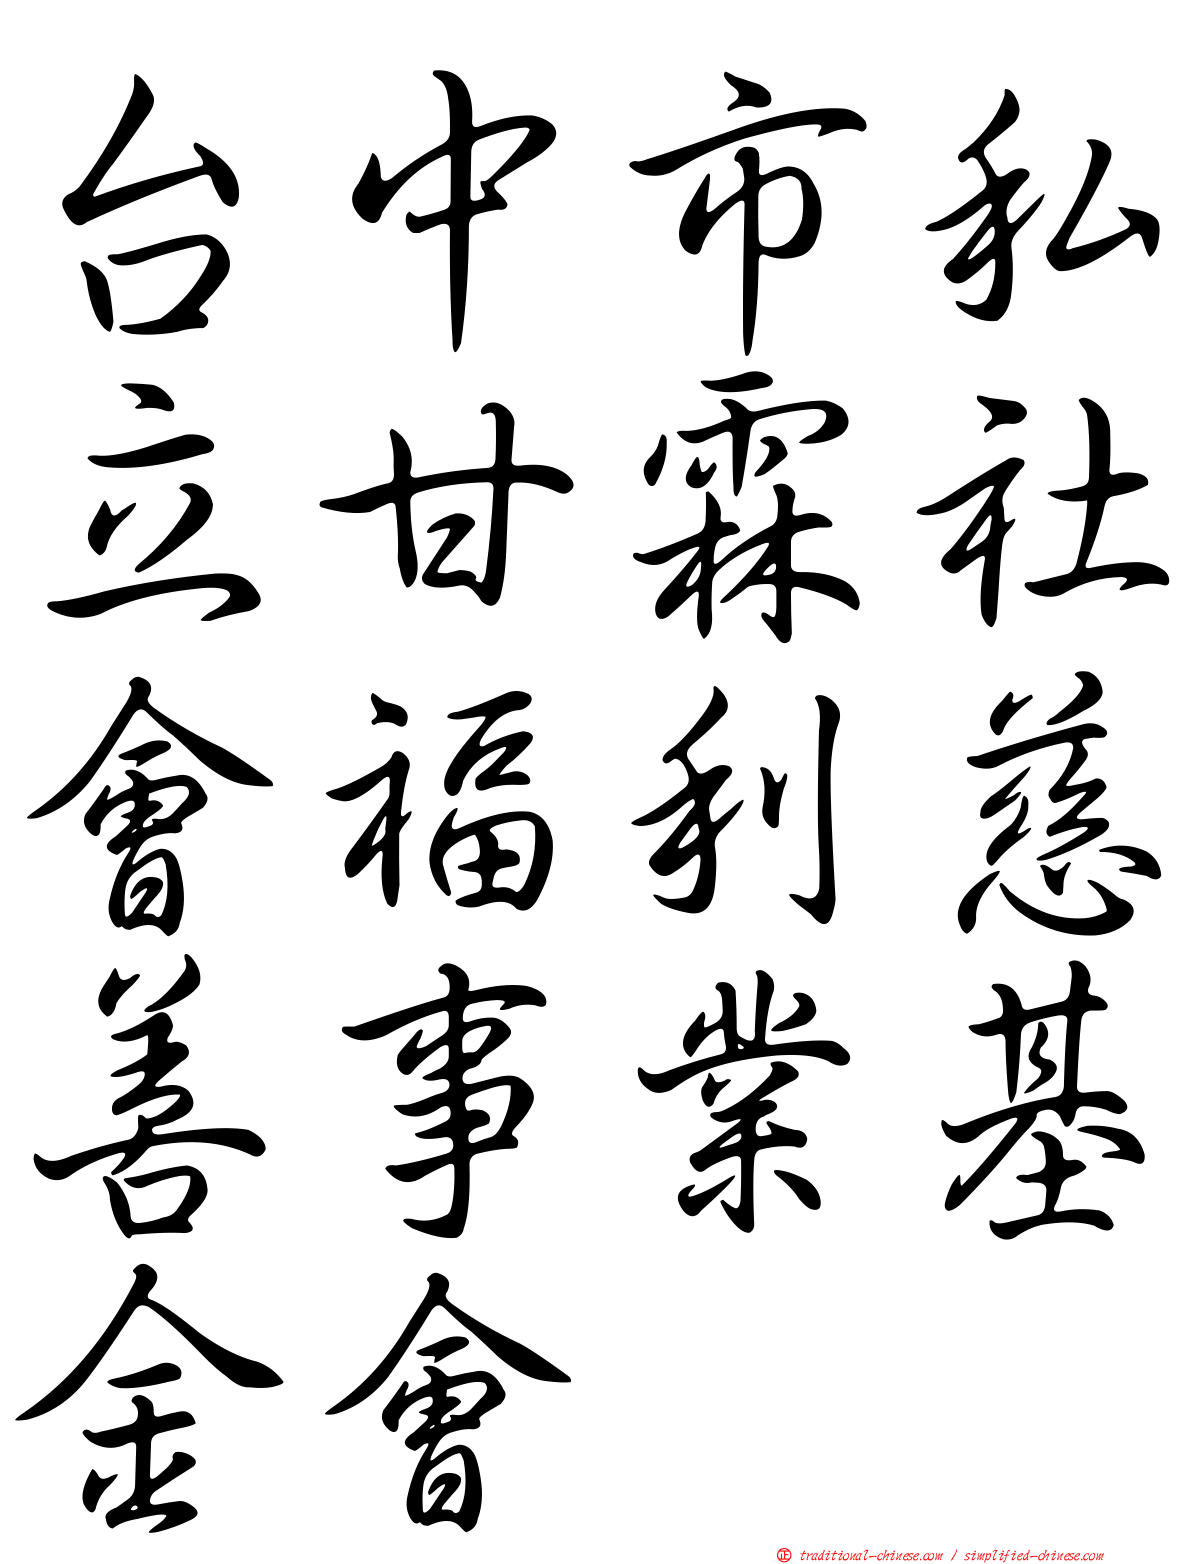 台中市私
立甘霖社
會福利慈
善事業基
金會
正 traditional-chinese.com / simplified-chinese.com